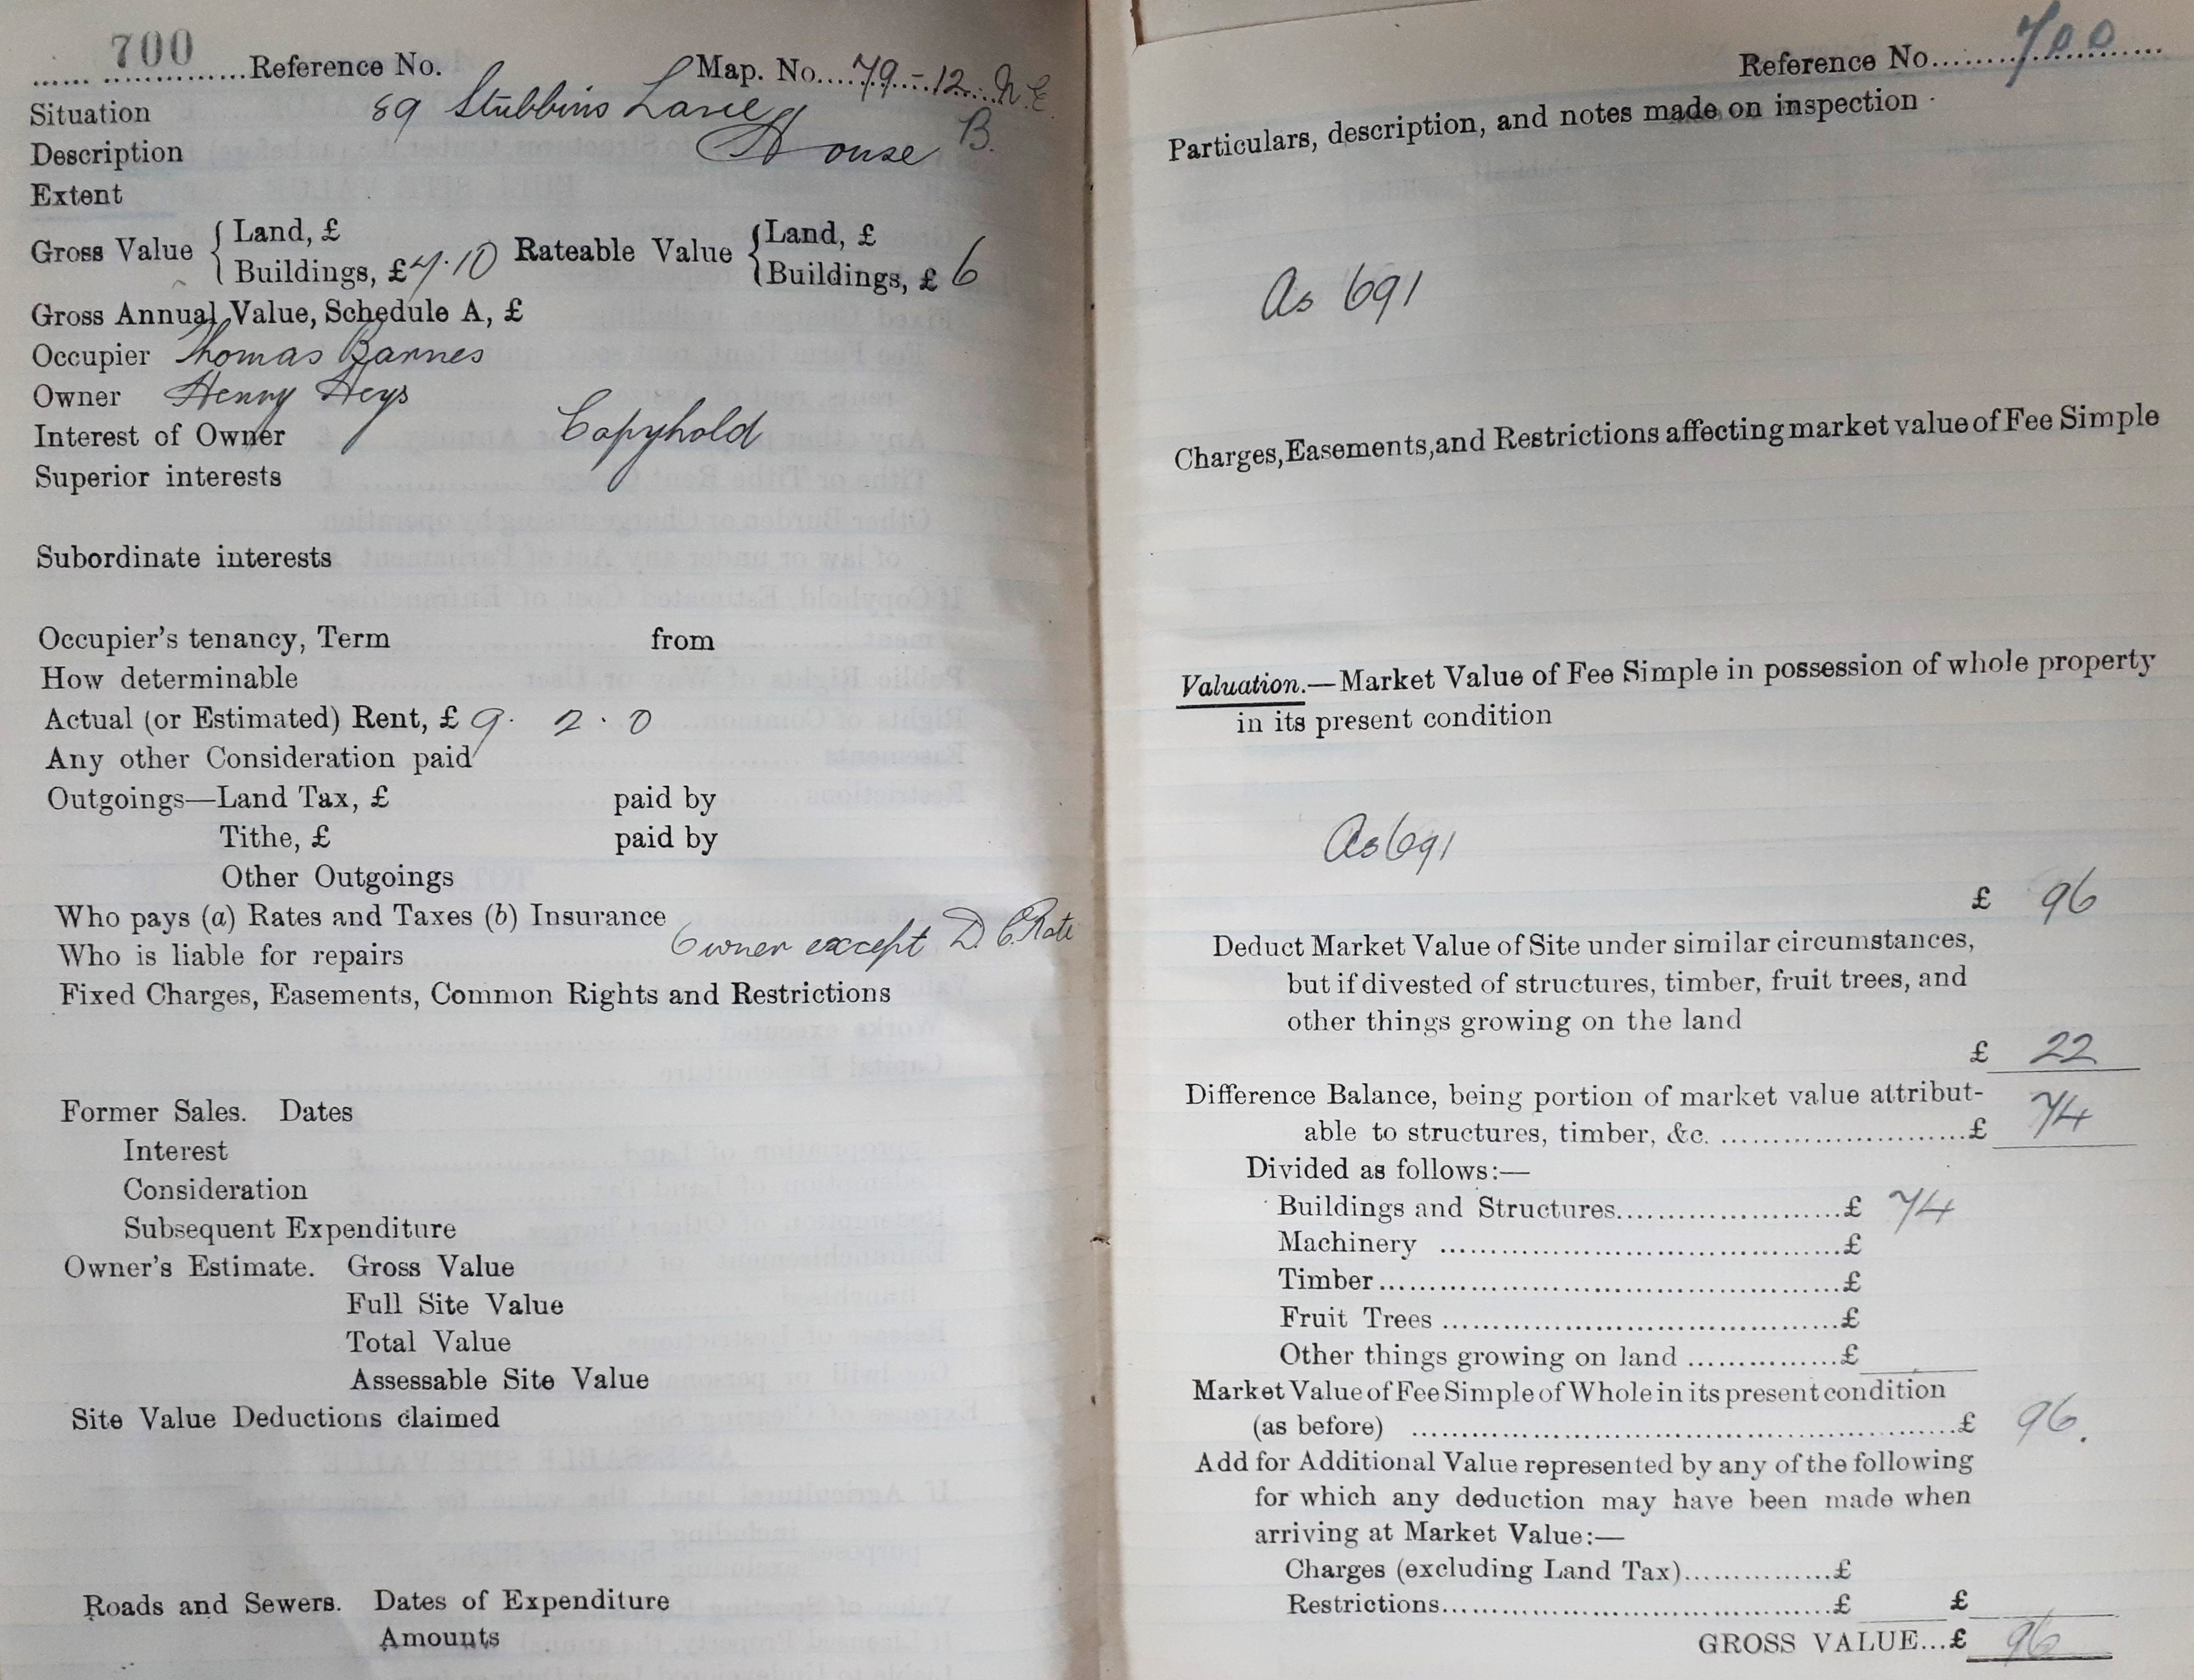 700 Reference No. Map. No. 79-12. N.E.
Situation 89 Stubbins Lane
Description House B.
Extent
Gross Value { Land, £ Rateable Value { Land, £
Buildings, £7.10 Buildings, £ 6
Gross Annual Value, Schedule A, £
Occupier Thomas Barnes
Owner Henry Heys
Interest of Owner Copyhold
Superior interests
Subordinate interests
Occupier's tenancy, Term from
How determinable
Actual (or Estimated) Rent, £ 9. 2. 0
Any other Consideration paid
Outgoings—Land Tax, £ paid by
Tithe, £ paid by
Other Outgoings
Who pays (a) Rates and Taxes (b) Insurance
Owner except D. C. Rate
Who is liable for repairs
Fixed Charges, Easements, Common Rights and Restrictions
Former Sales. Dates
Interest
Consideration
Subsequent Expenditure
Owner's Estimate. Gross Value
Full Site Value
Total Value
Assessable Site Value
Site Value Deductions claimed
Roads and Sewers. Dates of Expenditure
Amounts
Reference No. 700
Particulars, description, and notes made on inspection
As 691
Charges, Easements, and Restrictions affecting market value of Fee Simple
Valuation.—Market Value of Fee Simple in possession of whole property
in its present condition
As 691
£ 96
Deduct Market Value of Site under similar circumstances,
but if divested of structures, timber, fruit trees, and
other things growing on the land
£ 22
Difference Balance, being portion of market value attribut-
able to structures, timber, &c. £ 74
Divided as follows:—
Buildings and Structures £ 74
Machinery £
Timber £
Fruit Trees £
Other things growing on land £
Market Value of Fee Simple of Whole in its present condition
(as before) £ 96.
Add for Additional Value represented by any of the following
for which any deduction may have been made when
arriving at Market Value:—
Charges (excluding Land Tax) £
Restrictions £ £
GROSS VALUE...£ 96